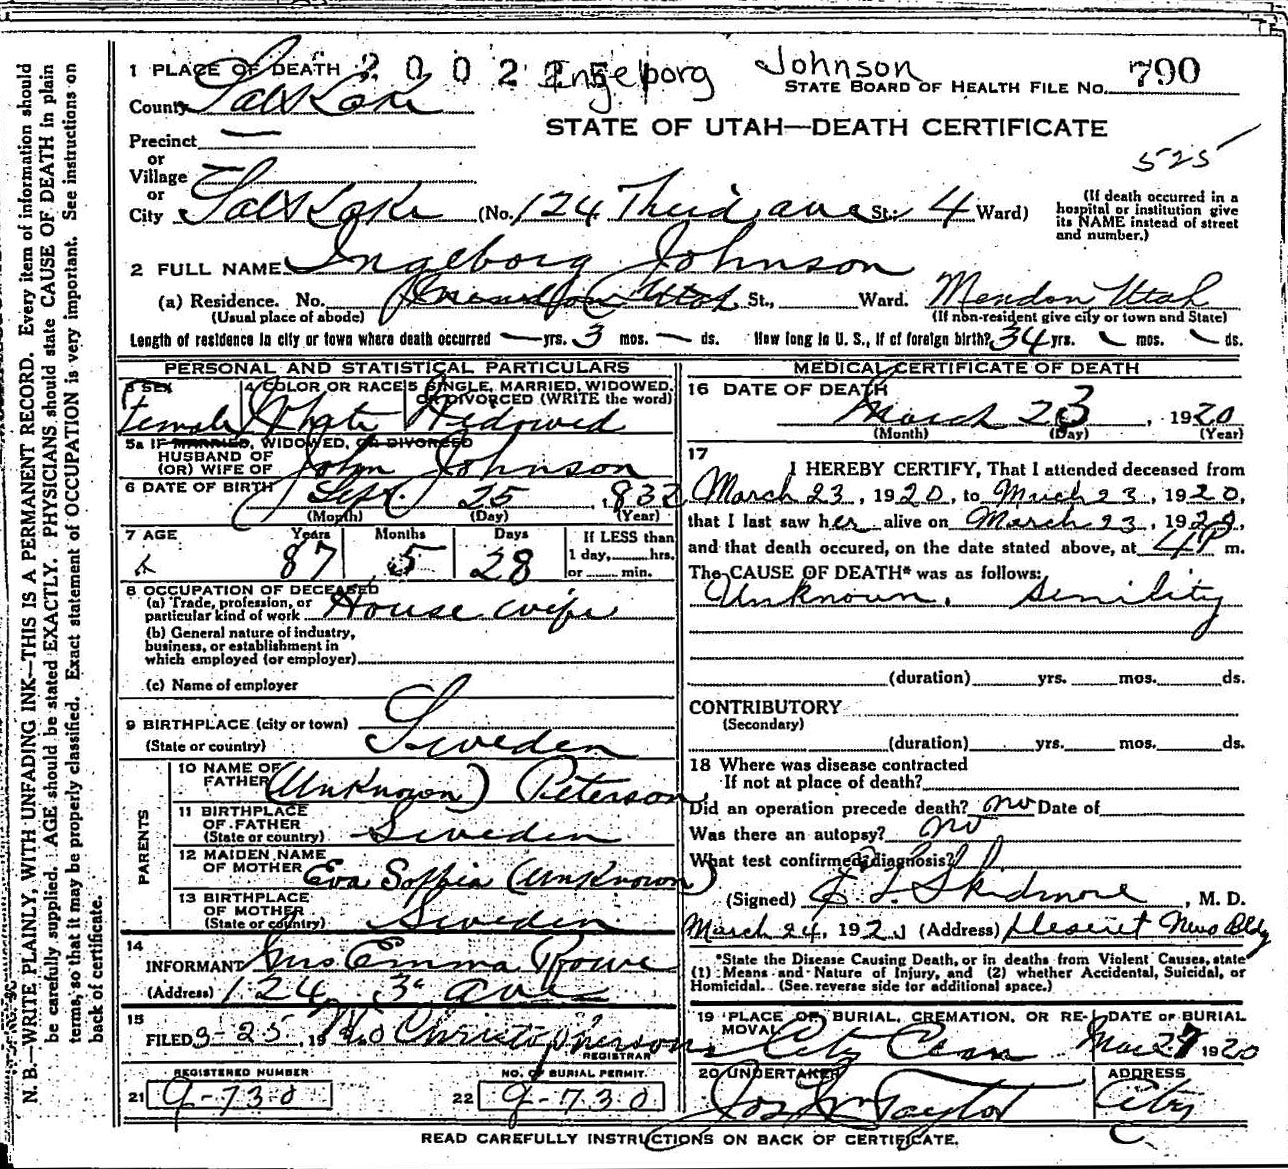 N. B.—WRITE PLAINLY, WITH UNFADING INK—THIS IS A PERMANENT RECORD. Every item of information should
be carefully supplied. AGE should be stated EXACTLY. PHYSICIANS should state CAUSE OF DEATH in plain
terms, so that it may be properly classified. Exact statement of OCCUPATION is very important. See instructions on
back of certificate.
1 PLACE OF DEATH 2 0 0 2 Ingeborg Johnson
County Salt Lake
STATE BOARD OF HEALTH FILE No. 790
Precinct —
STATE OF UTAH—DEATH CERTIFICATE
or
Village
525
or
City Salt Lake (No. 124 Third ave St.; 4 Ward)
(If death occurred in a
hospital or institution give
its NAME instead of street
and number.)
2 FULL NAME Ingeborg Johnson
(a) Residence. No. Utah St., Ward. Mendon Utah
(Usual place of abode) (If non-resident give city or town and State)
Length of residence in city or town where death occurred — yrs. 3 mos. — ds. How long in U. S., if of foreign birth? 34 yrs. — mos. — ds.
PERSONAL AND STATISTICAL PARTICULARS
3 SEX Female
4 COLOR OR RACE White
5 SINGLE, MARRIED, WIDOWED,
OR DIVORCED (WRITE the word)
Widowed
5a IF MARRIED, WIDOWED, OR DIVORCED
HUSBAND OF
(OR) WIFE OF John Johnson
6 DATE OF BIRTH Sept. 25, 1832
(Month) (Day) (Year)
7 AGE Years Months Days If LESS than
1 day,......hrs.
87 5 28 or ...... min.
8 OCCUPATION OF DECEASED
(a) Trade, profession, or
particular kind of work House wife
(b) General nature of industry,
business, or establishment in
which employed (or employer)
(c) Name of employer
9 BIRTHPLACE (city or town)
(State or country) Sweden
PARENTS
10 NAME OF
FATHER (Unknown) Peterson
11 BIRTHPLACE
OF FATHER
(State or country) Sweden
12 MAIDEN NAME
OF MOTHER Eva Sophia (Unknown)
13 BIRTHPLACE
OF MOTHER
(State or country) Sweden
14
INFORMANT Mrs Emma Rowe
(Address) 124 3d ave
15
FILED 3-25, 19 Christopherson
REGISTRAR
REGISTERED NUMBER
21 9-730
NO. OF BURIAL PERMIT.
22 9-730
MEDICAL CERTIFICATE OF DEATH
16 DATE OF DEATH
March 23, 1920
(Month) (Day) (Year)
17
I HEREBY CERTIFY, That I attended deceased from
March 23, 1920, to March 23, 1920,
that I last saw her alive on March 23, 1920,
and that death occured, on the date stated above, at 4 P m.
The CAUSE OF DEATH* was as follows:
Unknown. Senility
(duration) yrs. mos. ds.
CONTRIBUTORY
(Secondary)
(duration) yrs. mos. ds.
18 Where was disease contracted
If not at place of death?
Did an operation precede death? no Date of
Was there an autopsy? no
What test confirmed diagnosis?
(Signed) L. Skidmore, M. D.
March 24, 1920 (Address) Deseret News Bldg
*State the Disease Causing Death, or in deaths from Violent Causes, state
(1) Means and Nature of Injury, and (2) whether Accidental, Suicidal, or
Homicidal. (See reverse side for additional space.)
19 PLACE OF BURIAL, CREMATION, OR RE-
MOVAL City Cem
DATE OF BURIAL
Mar 27 1920
20 UNDERTAKER
Jos Wm Taylor
ADDRESS
City
READ CAREFULLY INSTRUCTIONS ON BACK OF CERTIFICATE.